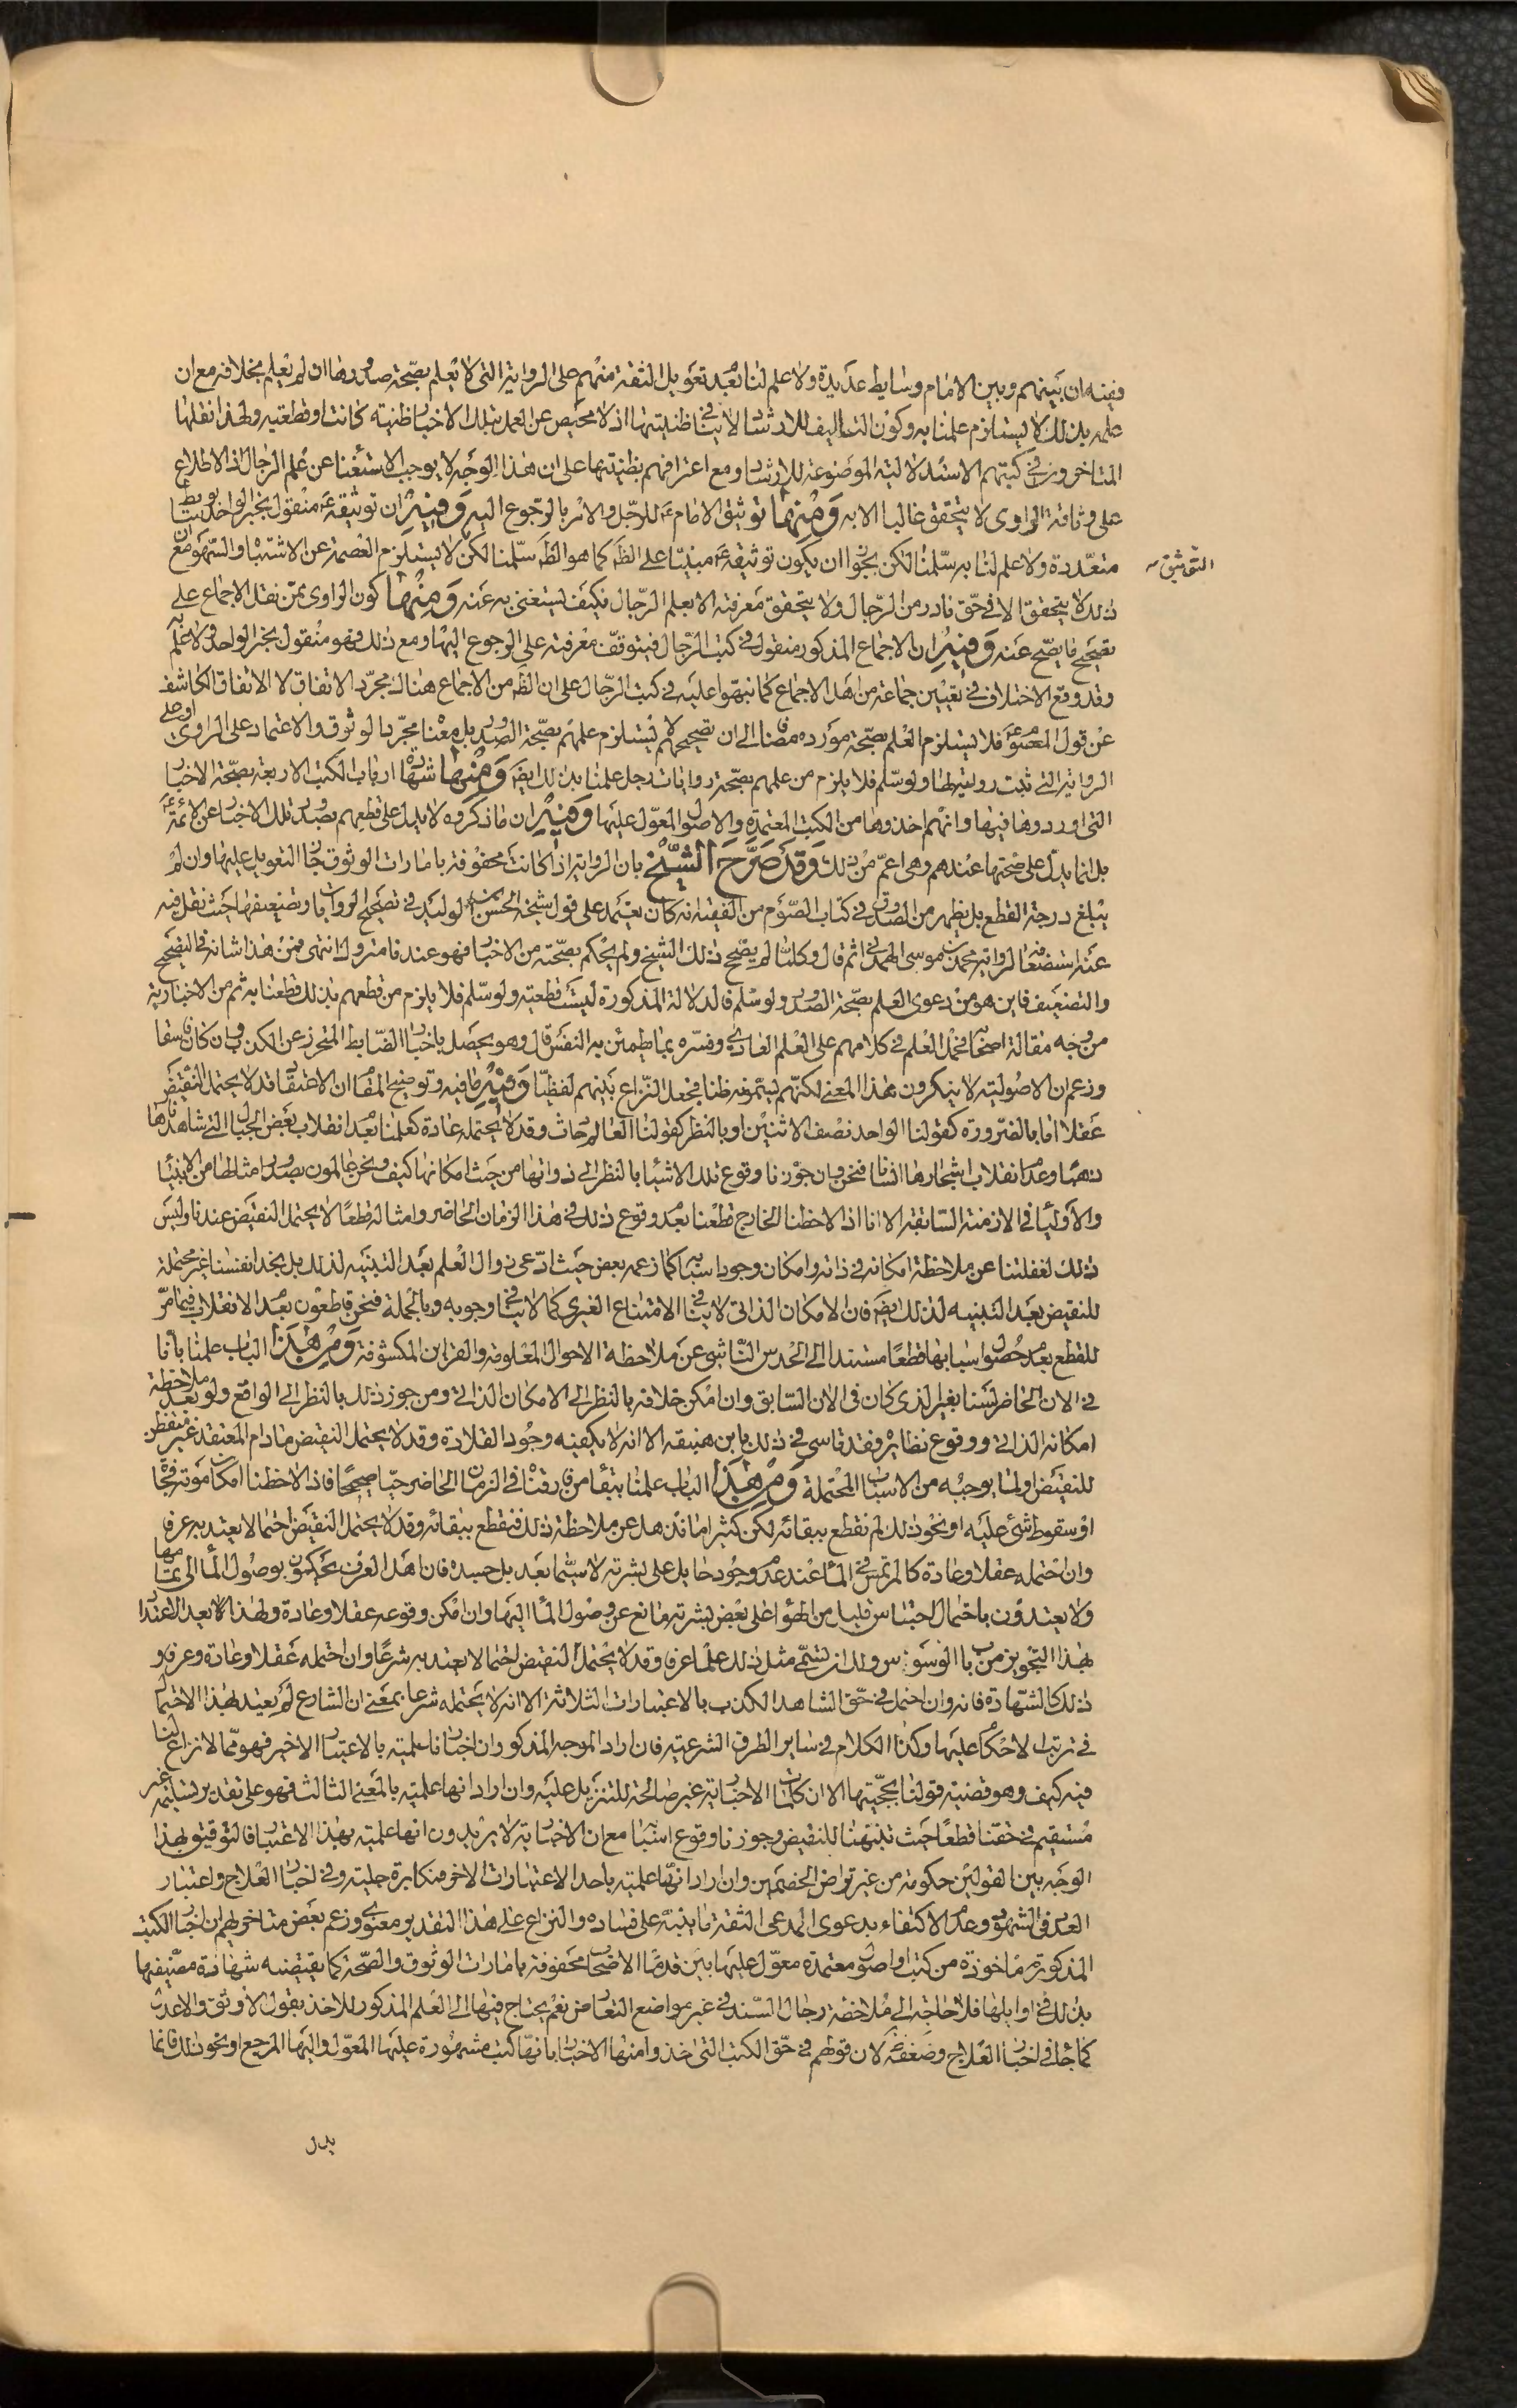 ففيه ان بينهم وبين الامام وسايط عديدة ولا علم لنا بعد تعويل الثقة منهم على الرواية التى لا يعلم بصحة صدورها ان لم يعلم بخلافه مع ان
علمه بذلك لا يستلزم علمنا به وكون التاليف للارشاد لا ينافى ظنيتها اذ لا محيص عن العمل بتلك الاخبار ظنيته كانت او قطعيه ولهذا نقلها
المتاخرون فى كتبهم الاستدلالية الموضوعة للارشاد مع اعترافهم بظنيتها على ان هذا الوجه لا يوجب الاستغناء عن علم الرجال اذ الاطلاع
على وثاقة الراوى لا يتحقق غالبا الا به ومنها توثيق الامام ع للرجل والامر بالرجوع اليه وفيه ان توثيقه ع منقول بخبر الواحد بوسائط
متعددة ولا علم لنا به سلمنا لكن يجوز ان يكون توثيقه ع مبنيا على الظ كما هو الظ سلمنا لكن لا يستلزم العصمة عن الاشتباه والسهو مع ان
التوثيق
ذلك لا يتحقق الا فى حق نادر من الرجال ولا يتحقق معرفته الا بعلم الرجال فكيف يستغنى به عنه ومنها كون الراوى ممن نقل الاجماع على
تصحيح ما يصح عنه وفيه ان الاجماع المذكور منقول فى كتب الرجال فيتوقف معرفته على الرجوع اليها ومع ذلك فهو منقول بخبر الواحد ولا علم به
وقد وقع الاختلاف فى تعيين جماعة من اهل الاجماع كما نبهوا عليه فى كتب الرجال على ان الظ من الاجماع هنا لك مجرد الاتفاق لا الاتفاق الكاشف
عن قول المعصوم ع فلا يستلزم العلم بصحة مورده مضافا الى ان تصحيحهم لا يستلزم علمهم بصحة الصدور بل معناه مجرد الوثوق والاعتماد على الراوى او على
الرواية التى ثبت روايته لها ولو سلم فلا يلزم من علمهم بصحة روايات رجل علمنا بذلك ايضا ومنها شهادة ارباب الكتب الاربعة بصحة الاخبار
التى اوردوها فيها وانهم اخذوها من الكتب المعتمدة والاصول المعول عليها وفيه ان ما ذكروه لا يدل على قطعهم بصدور تلك الاخبار عن الائمة ع
بل انما يدل على صحتها عندهم وهى اعم من ذلك وقد صرح الشيخ بان الرواية اذا كانت محفوفة بامارات الوثوق جاز التعويل عليها وان لم
يبلغ درجة القطع بل يظهر من الصدوق فى كتاب الصوم من الفقيه انه كان يعتمد على قول شيخه الحسن بن الوليد فى تصحيح الروايات وتضعيفها حيث نقل فيه
عنه استضعاف الرواية محمد بن موسى الهمدانى ثم قال وكلما لم يصحح ذلك الشيخ ولم يحكم بصحته من الاخبار فهو عندنا متروك انتهى فمن هذا شانه فى التصحيح
والتضعيف فاين هو من دعوى العلم بصحة الصدور ولو سلم فالدلالة المذكورة ليست قطعية ولو سلم فلا يلزم من قطعهم بذلك قطعنا به ثم من الاخبارية
من وجه مقالة اصحابه فحمل العلم فى كلامهم على العلم العادى وفسره بما يطمئن به النفس قال وهو يحصل باخبار الضابط المتحرز عن الكذب وان كان فاسقا
وزعم ان الاصولية لا ينكرون هذا المعنى لكنهم يسمونه ظنا فجعل النزاع بينهم لفظيا وفيه ما فيه وتوضيح المقام ان الاعتقاد قد لا يحتمل النقيض
عقلا اما بالضرورة كقولنا الواحد نصف الاثنين او بالنظر كقولنا العالم حادث وقد لا يحتمله عادة كعلمنا بعدم انقلاب بعض الجبال التى شاهدناها
ذهبا وعدم انقلاب اشجارها اناسا فنحن وان جوزنا وقوع تلك الاشياء بالنظر الى ذواتها من حيث امكانها كيف ونحن عالمون بصدور امثالها من الانبياء
والاولياء فى الازمنة السابقة الا انا اذا لاحظنا الخارج قطعنا بعدم وقوع ذلك فى هذا الزمان الحاضر وامثاله قطعا لا يحتمل النقيض عندنا وليس
ذلك لغفلتنا عن ملاحظة امكانه فى ذاته وامكان وجود اسبابه كما زعمه بعض حيث ادعى زوال العلم بعد التنبيه لذلك بل نجد انفسنا غير محتملة
للنقيض بعد التنبيه لذلك ايضا فان الامكان الذاتى لا ينافى الامتناع الغيرى كما لا ينافى وجوبه وبالجملة فنحن قاطعون بعدم الانقلاب فيما مر
للقطع بعدم حصول اسبابها قطعا مستندا الى الحدس الناشى عن ملاحظة الاحوال المعلومة والقراين المكشوفة ومن هذا الباب علمنا بانا
فى الان الحاضر لسنا بغير الذى كان فى الان السابق وان امكن خلافه بالنظر الى الامكان الذاتى ومن جوز ذلك بالنظر الى الواقع ولو بعد ملاحظة
امكانه الذاتى ووقوع نظايره فقد تاسى فى ذلك بابن هبنقه الا انه لا يكفيه وجود القلادة وقد لا يحتمل النقيض مادام المعتقد غير متفطن
للنقيض او لما يوجبه من الاسباب المحتملة ومن هذا الباب علمنا ببقاء من فارقناه فى الزمان الحاضر حيا صحيحا فاذا لاحظنا امكان موته فجاة
او سقوط شئ عليه او نحو ذلك لم نقطع ببقائه لكن كثيرا ما نذهل عن ملاحظة ذلك فنقطع ببقائه وقد لا يحتمل النقيض احتمالا يعتد به عرفا
وان احتمله عقلا وعادة كالمرتمس فى الماء عند عدم وجود حايل على بشرته لا سيما بعد بل جسده فان اهل العرف يحكمون بوصول الماء الى تمامها
ولا يعتدون باحتمال احتباس قليل من الهواء على بعض بشرته مانع عن وصول الماء اليها وان امكن وقوعه عقلا وعادة ولهذا لا يعد الاعتداد
بهذا التجويز من باب الوسوس ولك ان تسمى مثل ذلك علما عرفا وقد لا يحتمل النقيض احتمالا يعتد به شرعا وان احتمله عقلا وعادة وعرفا و
ذلك كالشهادة فانه وان احتمل فى حق الشاهد الكذب بالاعتبارات الثلاثة الا انه لا يحتمله شرعا بمعنى ان الشارع لم يعتد بهذا الاحتمال
فى ترتب الاحكام عليها وكذا الكلام فى ساير الطرق الشرعية فان اراد الموجه المذكور ان اخبارنا علمية بالاعتبار الاخير فهو مما لا نزاع لنا
فيه كيف وهو قضية قولنا بحجيتها الا ان كلمات الاخبارية غير صالحة للتنزيل عليه وان اراد انها علمية بالمعنى الثالث فهو على تقدير تسليمه غير
مستقيم فى حقنا قطعا حيث تنبهنا للنقيض وجوزنا وقوع اسبابه مع ان الاخبارية لا يريدون انها علمية بهذا الاعتبار فالتوفيق بهذا
الوجه بين القولين حكومة من غير تراض الخصمين وان اراد انها علمية باحد الاعتبارات الاخر فمكابرة جلية وفى اخبار العلاج واعتبار
العدد فى الشهود وعدم الاكتفاء بدعوى المدعى الثقة ما ينبه على فساده والنزاع على هذا التقدير معنوى وزعم بعض متاخريهم ان اخبار الكتب
المذكورة ماخوذة من كتب واصول معتمدة معول عليها بين قدماء الاصحاب محفوفة بامارات الوثوق والصحة كما يقتضيه شهادة مصنفيها
بذلك فى اوايلها فلا حاجة الى ملاحظة رجال السند فى غير مواضع التعارض نعم يحتاج فيها الى العلم المذكور للاخذ بقول الاوثق والاعدل
كما جاء فى اخبار العلاج وضعفه لان قولهم فى حق الكتب التى اخذوا منها الاخبار بانها كتب مشهورة عليها المعول واليها المرجع او نحو ذلك فانما
يدل